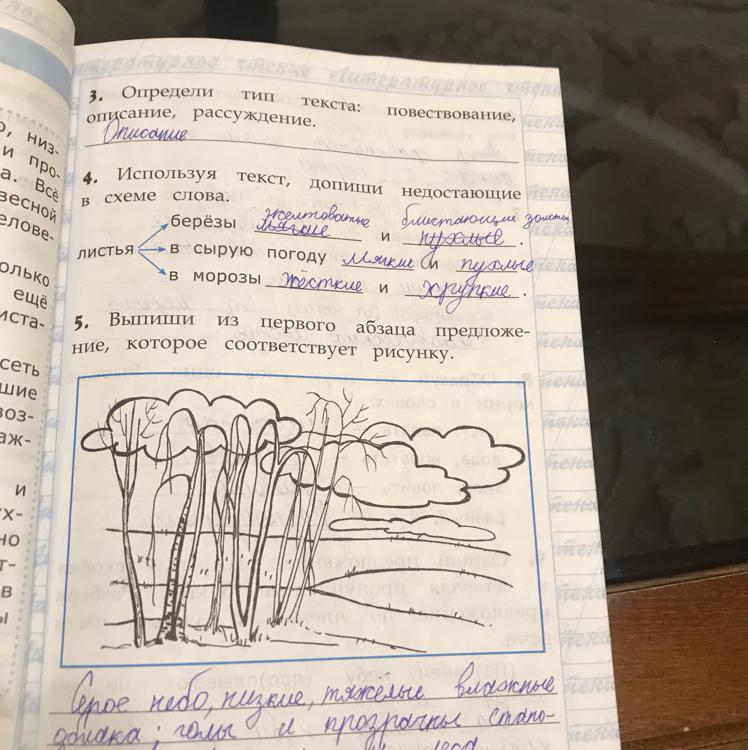 Литературное чтение Литературное чтение
3. Определи тип текста: повествование,
описание, рассуждение.
Описание
4. Используя текст, допиши недостающие
в схеме слова.
желтоватые блистающие золотом
берёзы мягкие и пухлые.
листья в сырую погоду мягкие и пухлые
в морозы жёсткие и хрупкие.
5. Выпиши из первого абзаца предложе-
ние, которое соответствует рисунку.
Серое небо, низкие, тяжелые влажные
облака; голы и прозрачны стано-
леса
о, низ-
и про-
а. Всё
весной
елове-
олько
ещё
иста-
сеть
шие
воз-
аж-
и
ух-
но
т-
в
ы